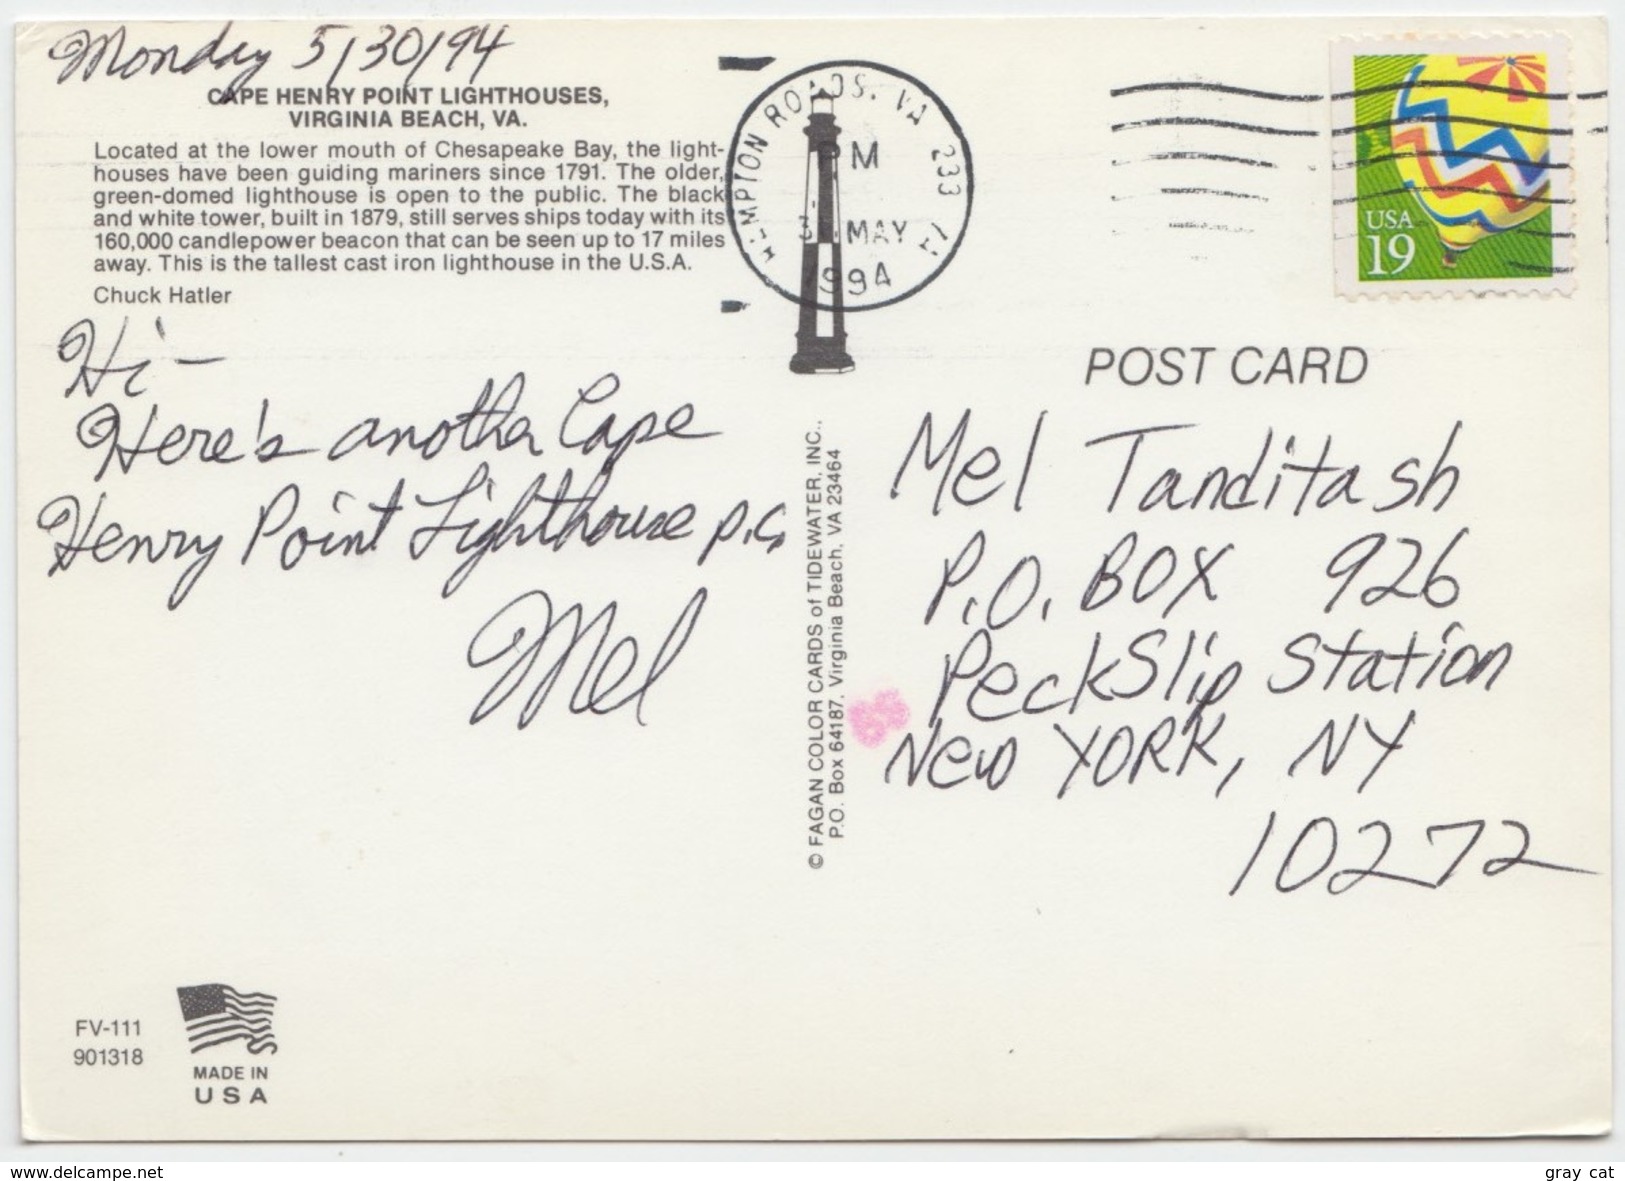 Monday 5/30/94
CAPE HENRY POINT LIGHTHOUSES,
VIRGINIA BEACH, VA.
Located at the lower mouth of Chesapeake Bay, the light-
houses have been guiding mariners since 1791. The older,
green-domed lighthouse is open to the public. The black
and white tower, built in 1879, still serves ships today with its
160,000 candlepower beacon that can be seen up to 17 miles
away. This is the tallest cast iron lighthouse in the U.S.A.
Chuck Hatler
Hi-
Here's another Cape
Henry Point Lighthouse p.c.
Mel
FV-111
901318
MADE IN
USA
© FAGAN COLOR CARDS of TIDEWATER, INC.,
P.O. Box 64187, Virginia Beach, VA 23464
HAMPTON ROADS, VA 233
PM
MAY
1994
USA
19
POST CARD
Mel Tanditash
P.O. BOX 926
PeckSlip Station
New YORK, NY
10272
www.delcampe.net
gray cat